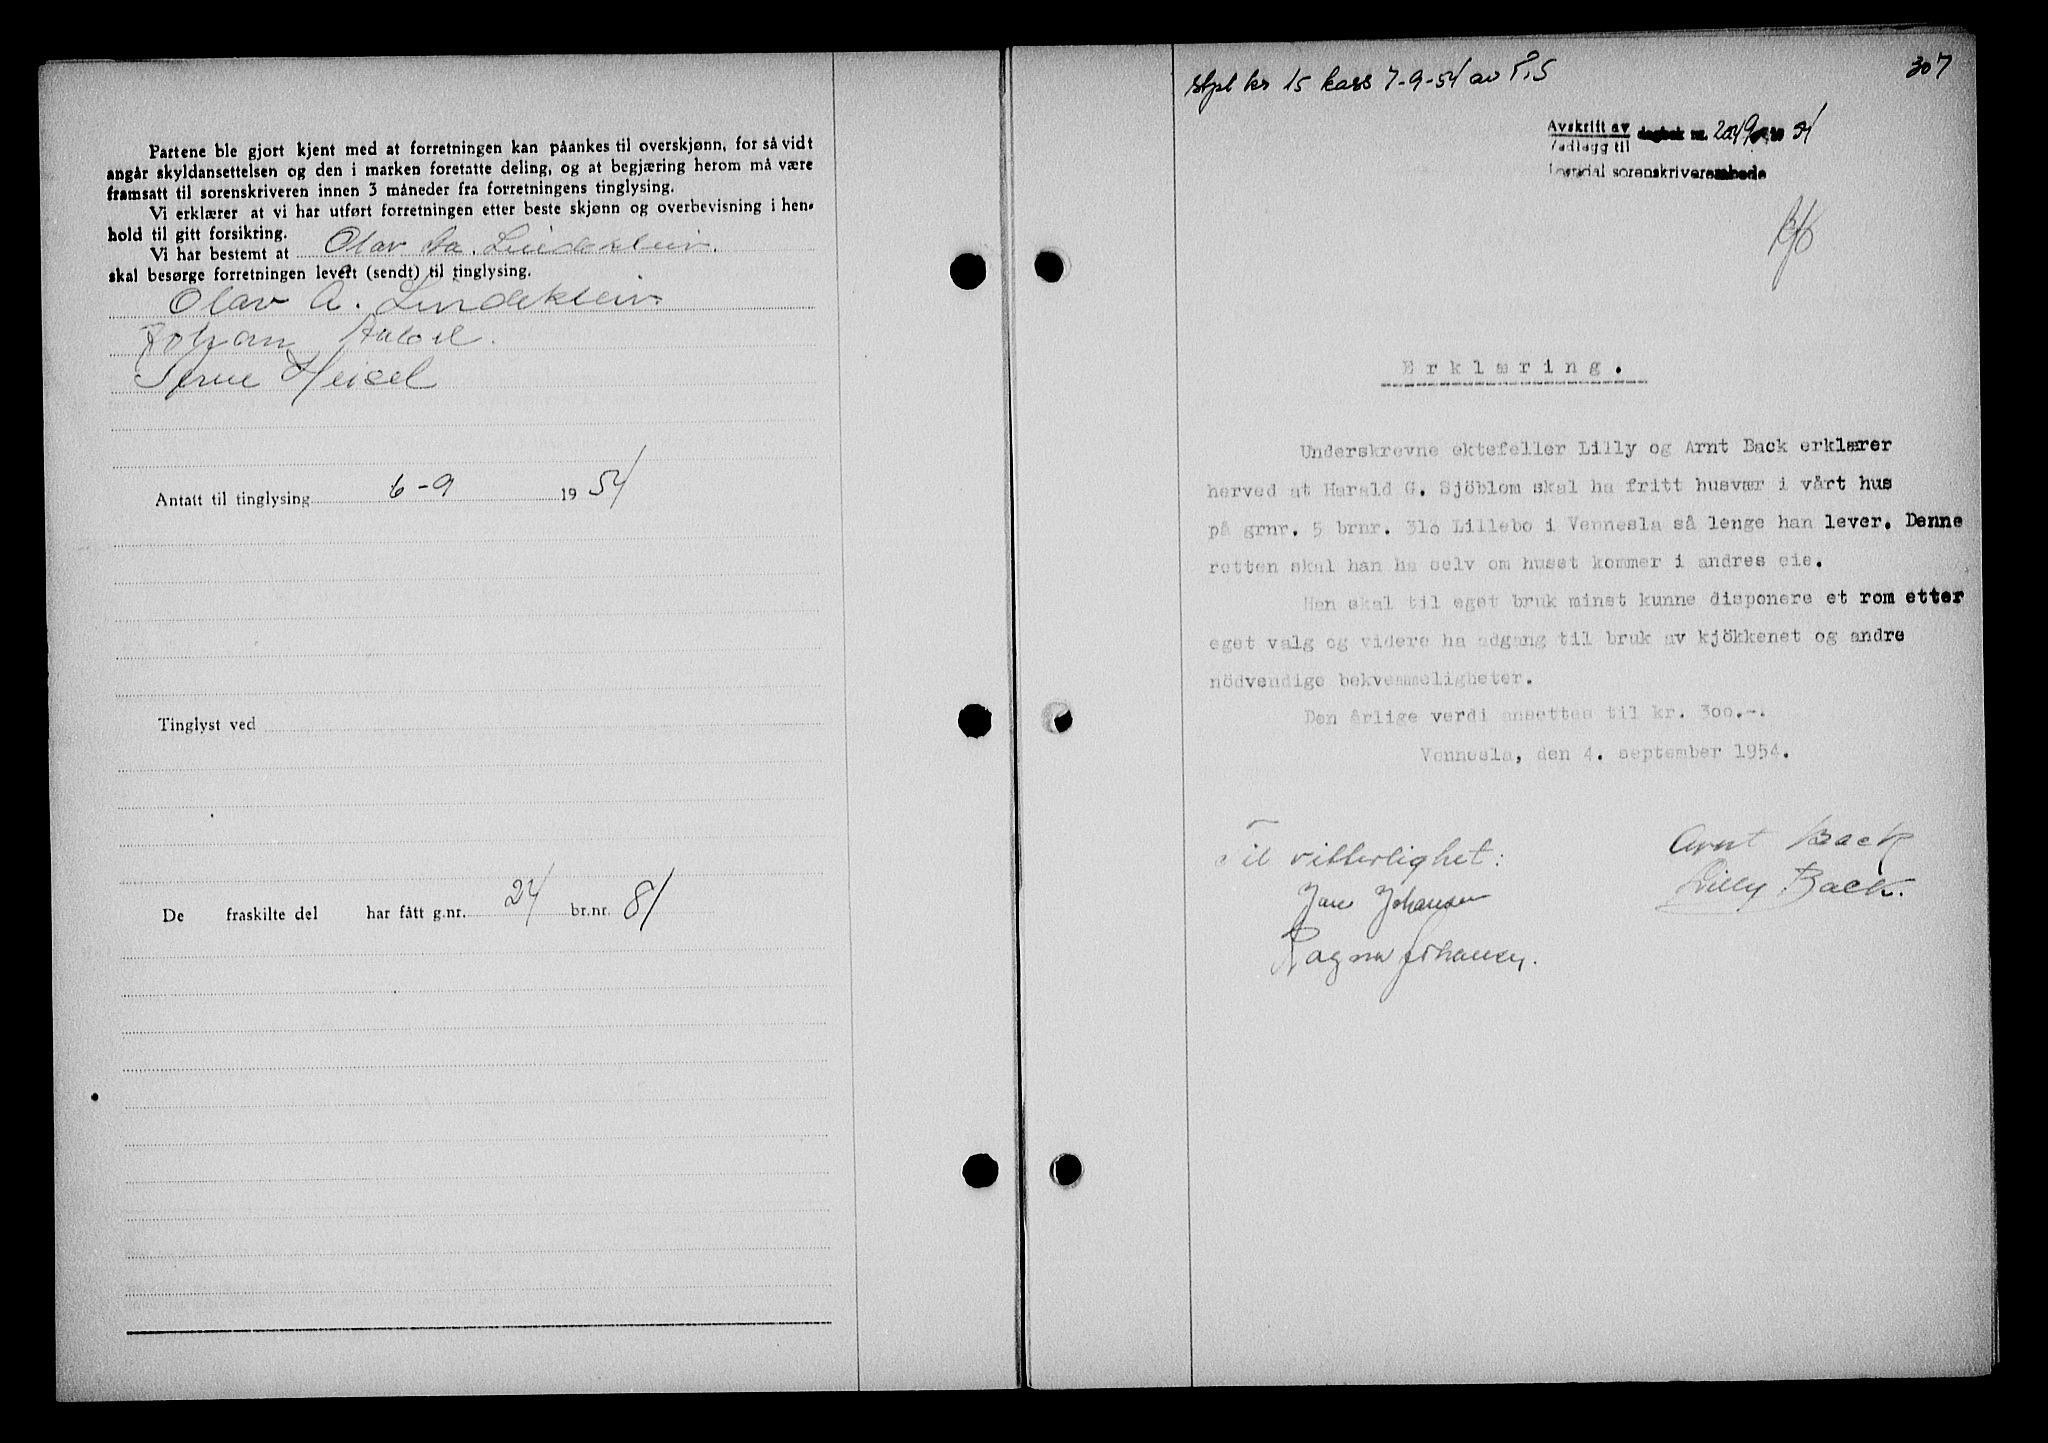 Partene ble gjort kjent med at forretningen kan påankes til overskjønn, for så vidt
angår skyldansettelsen og den i marken foretatte deling, og at begjæring herom må være
framsatt til sorenskriveren innen 3 måneder fra forretningens tinglysing.
Vi erklærer at vi har utført forretningen etter beste skjønn og overbevisning i hen-
hold til gitt forsikring.
Vi har bestemt at Olav Aa. Lindekleiv.
skal besørge forretningen levert (sendt) til tinglysing.
Olav A. Lindekleiv.
Johan
Heisel
Antatt til tinglysing 6-9 1954
Tinglyst ved
De fraskilte del har fått g.nr. 24 br.nr. 81
307
stpl kr 15 kass 7-9-54 av P.S
Avskrift av
Vedlegg til
dagbok nr. 2049 19 54
Torridal sorenskriverembede
Erklæring.
Underskrevne ektefeller Lilly og Arnt Back erklærer
herved at Harald G. Sjöblom skal ha fritt husvær i vårt hus
på grnr. 5 brnr. 310 Lillebo i Vennesla så lenge han lever. Denne
retten skal han ha selv om huset kommer i andres eie.
Han skal til eget bruk minst kunne disponere et rom etter
eget valg og videre ha adgang til bruk av kjökkenet og andre
nödvendige bekvemmeligheter.
Den årlige verdi ansettes til kr. 300.-.
Vennesla, den 4. september 1954.
Til vitterlighet:
Arnt Back
Lilly Back.
Jan Johansen
Ragna Johansen.